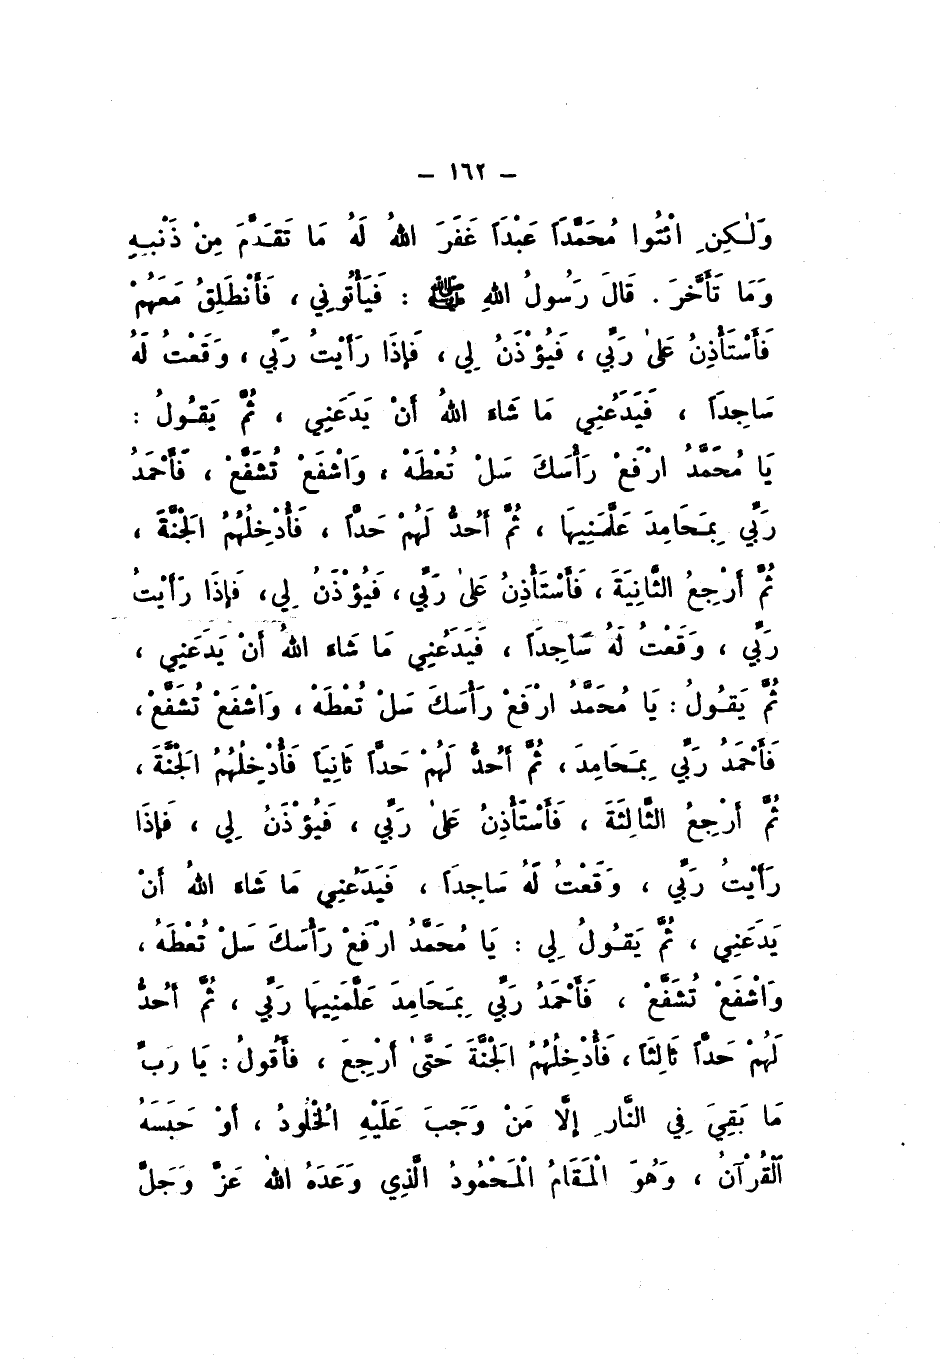 – ١٦٢ –
وَلٰكِنِ ائْتُوا مُحَمَّدَاً عَبْدَاً غَفَرَ اللهُ لَهُ مَا تَقَدَّمَ مِنْ ذَنْبِهِ
وَمَا تَأَخَّرَ . قَالَ رَسُولُ اللهِ ﷺ : فَيَأْتُونِي ، فَأَنْطَلِقُ مَعَهُمْ
فَأَسْتَأْذِنُ عَلىٰ رَبِّي ، فَيُؤْذَنُ لِي ، فَإِذَا رَأَيْتُ رَبِّي ، وَقَعْتُ لَهُ
سَاجِدَاً ، فَيَدَعُنِي مَا شَاءَ اللهُ أَنْ يَدَعَنِي ، ثُمَّ يَقُولُ :
يَا مُحَمَّدُ ارْفَعْ رَأْسَكَ سَلْ تُعْطَهْ ، وَاشْفَعْ تُشَفَّعْ ، فَأَحْمَدُ
رَبِّي بِمَحَامِدَ عَلَّمَنِيهَا ، ثُمَّ أَحُدُّ لَهُمْ حَدَّاً ، فَأُدْخِلُهُمُ الْجَنَّةَ ،
ثُمَّ أَرْجِعُ الثَّانِيَةَ ، فَأَسْتَأْذِنُ عَلىٰ رَبِّي ، فَيُؤْذَنُ لِي ، فَإِذَا رَأَيْتُ
رَبِّي ، وَقَعْتُ لَهُ سَاجِدَاً ، فَيَدَعُنِي مَا شَاءَ اللهُ أَنْ يَدَعَنِي ،
ثُمَّ يَقُولُ : يَا مُحَمَّدُ ارْفَعْ رَأْسَكَ سَلْ تُعْطَهْ ، وَاشْفَعْ تُشَفَّعْ ،
فَأَحْمَدُ رَبِّي بِمَحَامِدَ ، ثُمَّ أَحُدُّ لَهُمْ حَدَّاً ثَانِيَاً فَأُدْخِلُهُمُ الْجَنَّةَ ،
ثُمَّ أَرْجِعُ الثَّالِثَةَ ، فَأَسْتَأْذِنُ عَلىٰ رَبِّي ، فَيُؤْذَنُ لِي ، فَإِذَا
رَأَيْتُ رَبِّي ، وَقَعْتُ لَهُ سَاجِدَاً ، فَيَدَعُنِي مَا شَاءَ اللهُ أَنْ
يَدَعَنِي ، ثُمَّ يَقُولُ لِي : يَا مُحَمَّدُ ارْفَعْ رَأْسَكَ سَلْ تُعْطَهُ ،
وَاشْفَعْ تُشَفَّعْ ، فَأَحْمَدُ رَبِّي بِمَحَامِدَ عَلَّمَنِيهَا رَبِّي ، ثُمَّ أَحُدُّ
لَهُمْ حَدَّاً ثَالِثَاً ، فَأُدْخِلُهُمُ الْجَنَّةَ حَتَّىٰ أَرْجِعَ ، فَأَقُولُ : يَا رَبِّ
مَا بَقِيَ فِي النَّارِ إِلَّا مَنْ وَجَبَ عَلَيْهِ الْخُلُودُ ، أَوْ حَبَسَهُ
الْقُرْآنُ ، وَهُوَ الْمَقَامُ الْمَحْمُودُ الَّذِي وَعَدَهُ اللهُ عَزَّ وَجَلَّ